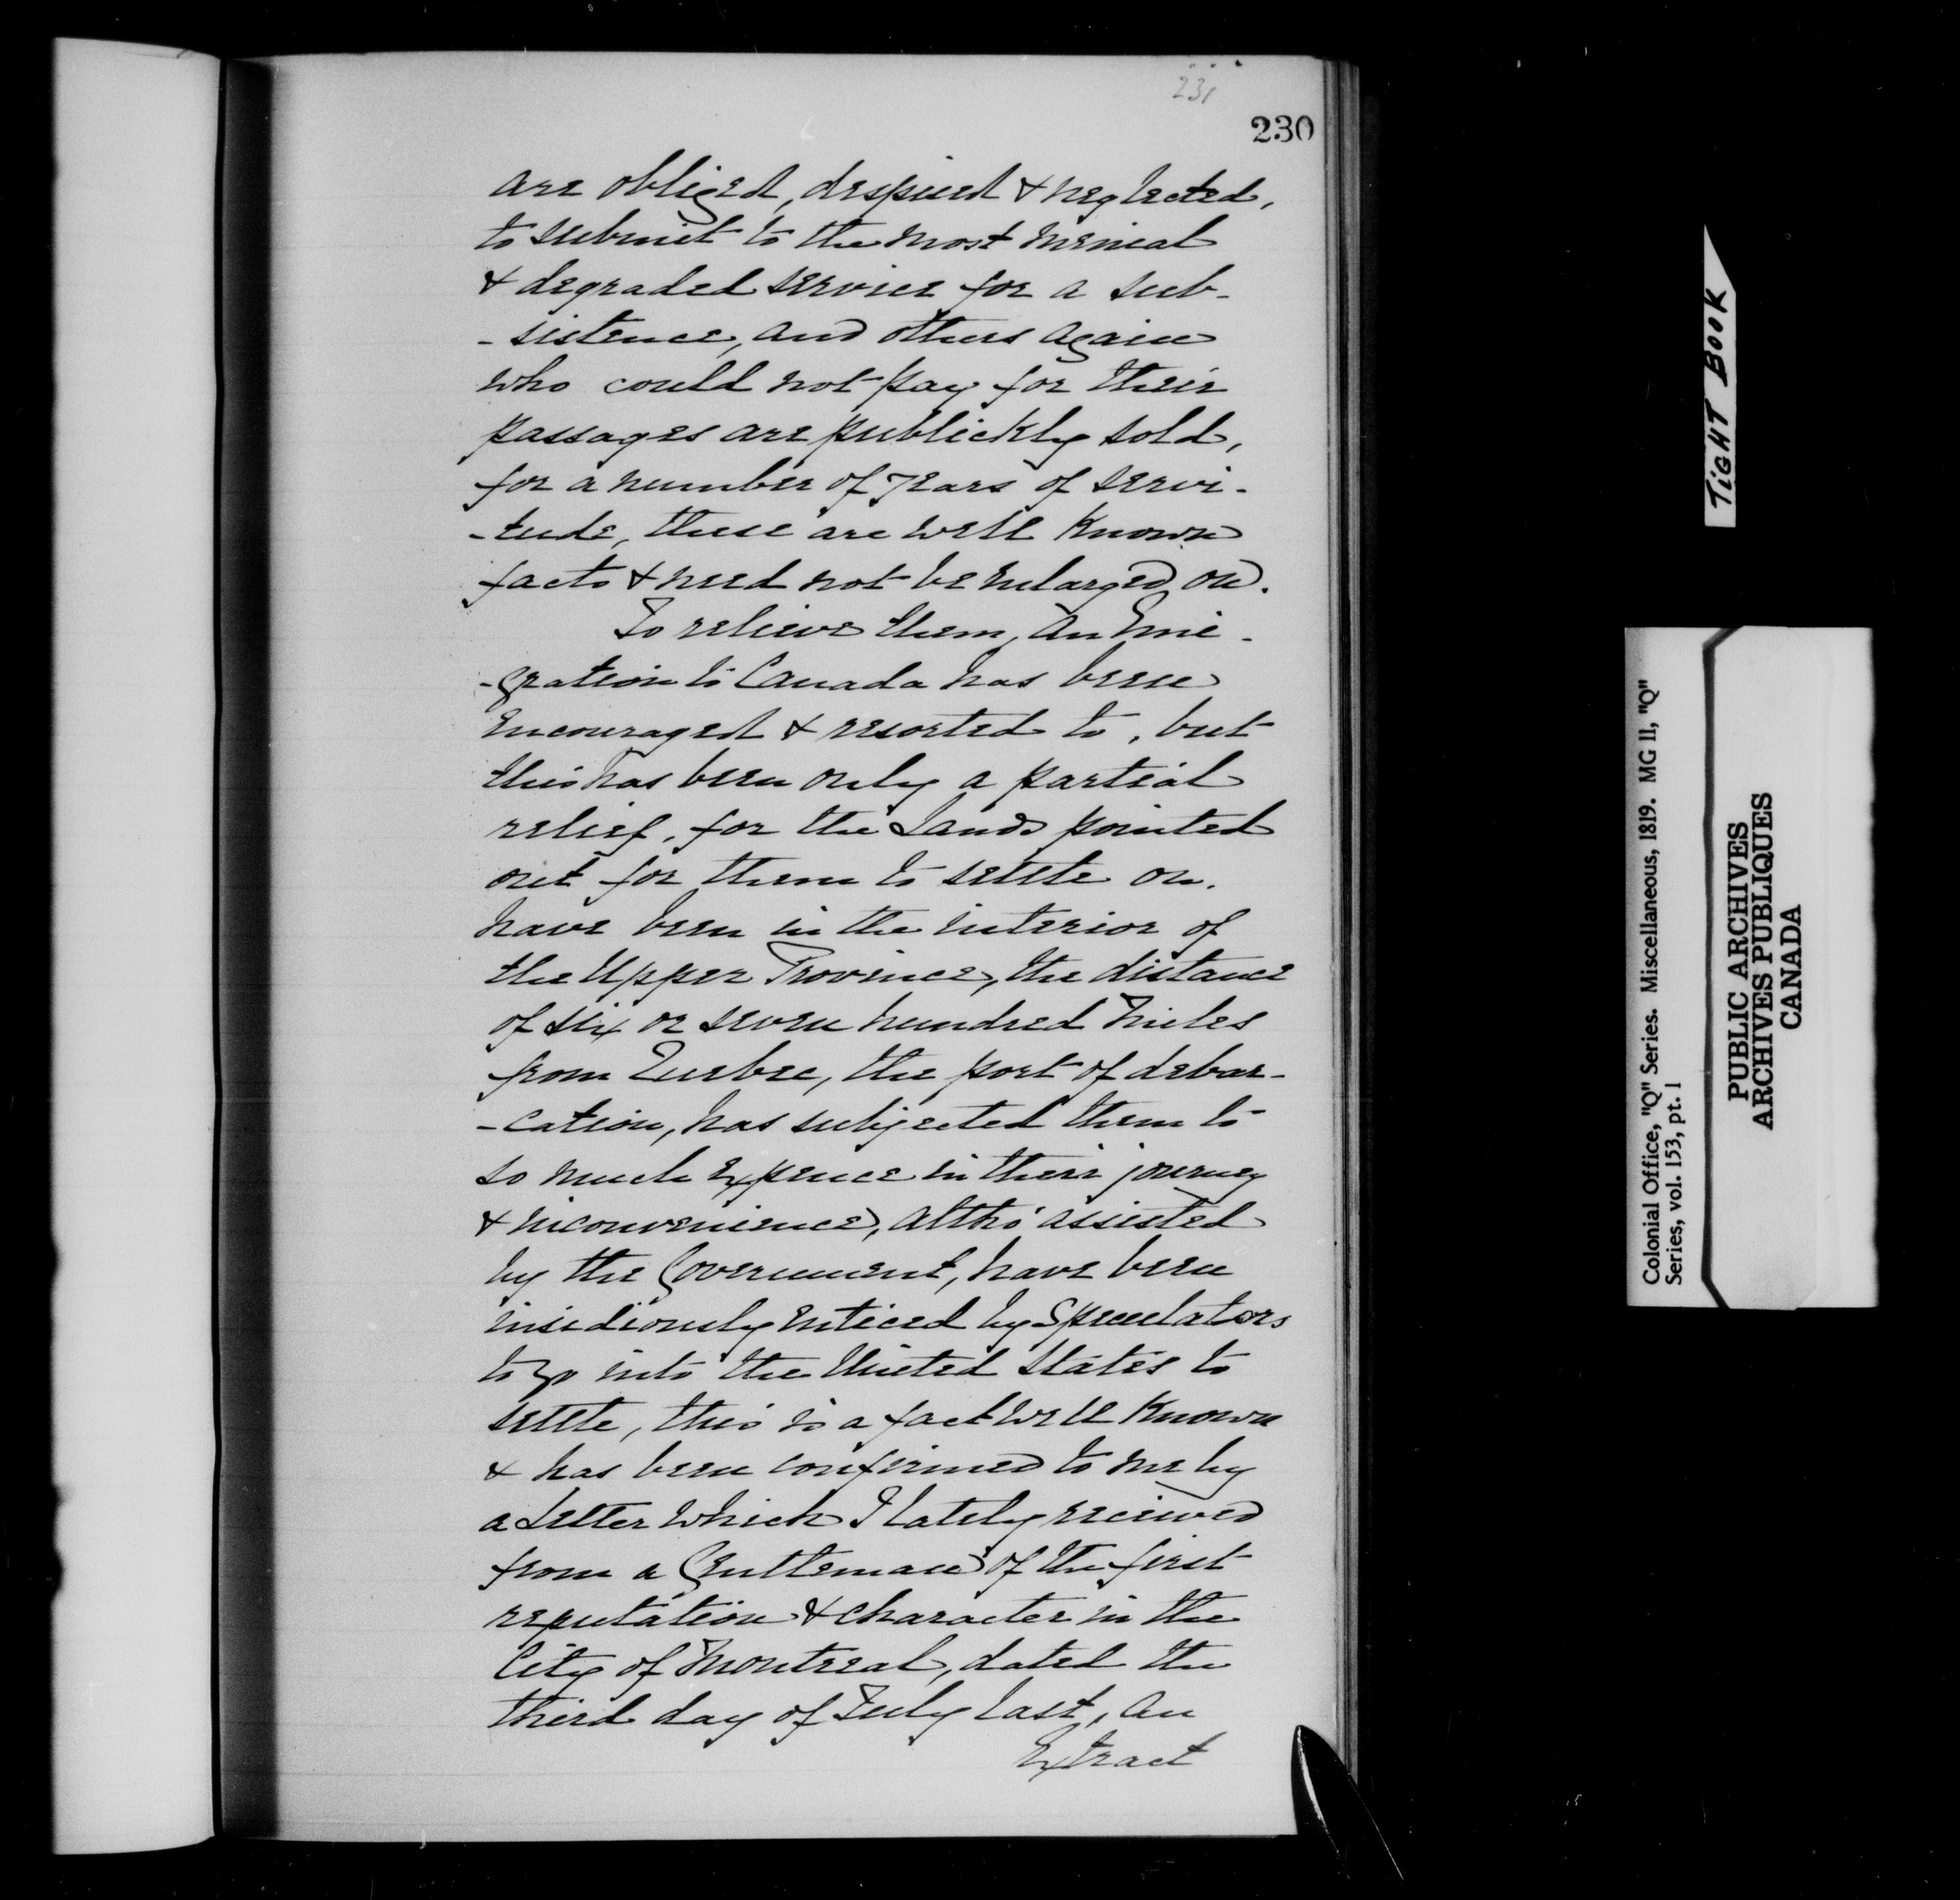 231
230
are obliged, despised & neglected,
to submit to the most menial
& degraded service for a sub-
- sistence, and others again
who could not pay for their
passages are publickly sold,
for a number of years of servi-
- tude, these are well known
facts & need not be enlarged on.
To relieve them, an Emi-
- gration to Canada has been
encouraged & resorted to, but
this has been only a partial
relief, for the Lands pointed
out for them to settle on.
have been in the interior of
the Upper Province, the distance
of six or seven hundred Miles
from Quebec, the port of debar-
- cation, has subjected them to
so much expence in their journey
& inconvenience, altho' assisted
by the Government, have been
insidiously enticed by Speculators
to go into the United States to
settle, this is a fact well known
& has been confirmed to me by
a Letter which I lately received
from a Gentleman of the first
reputation & character in the
City of Montreal, dated the
third day of July last, an
Extract
TIGHT BOOK
Colonial Office, "Q" Series. Miscellaneous, 1819. MG 11, "Q"
Series, vol. 153, pt. 1
PUBLIC ARCHIVES
ARCHIVES PUBLIQUES
CANADA